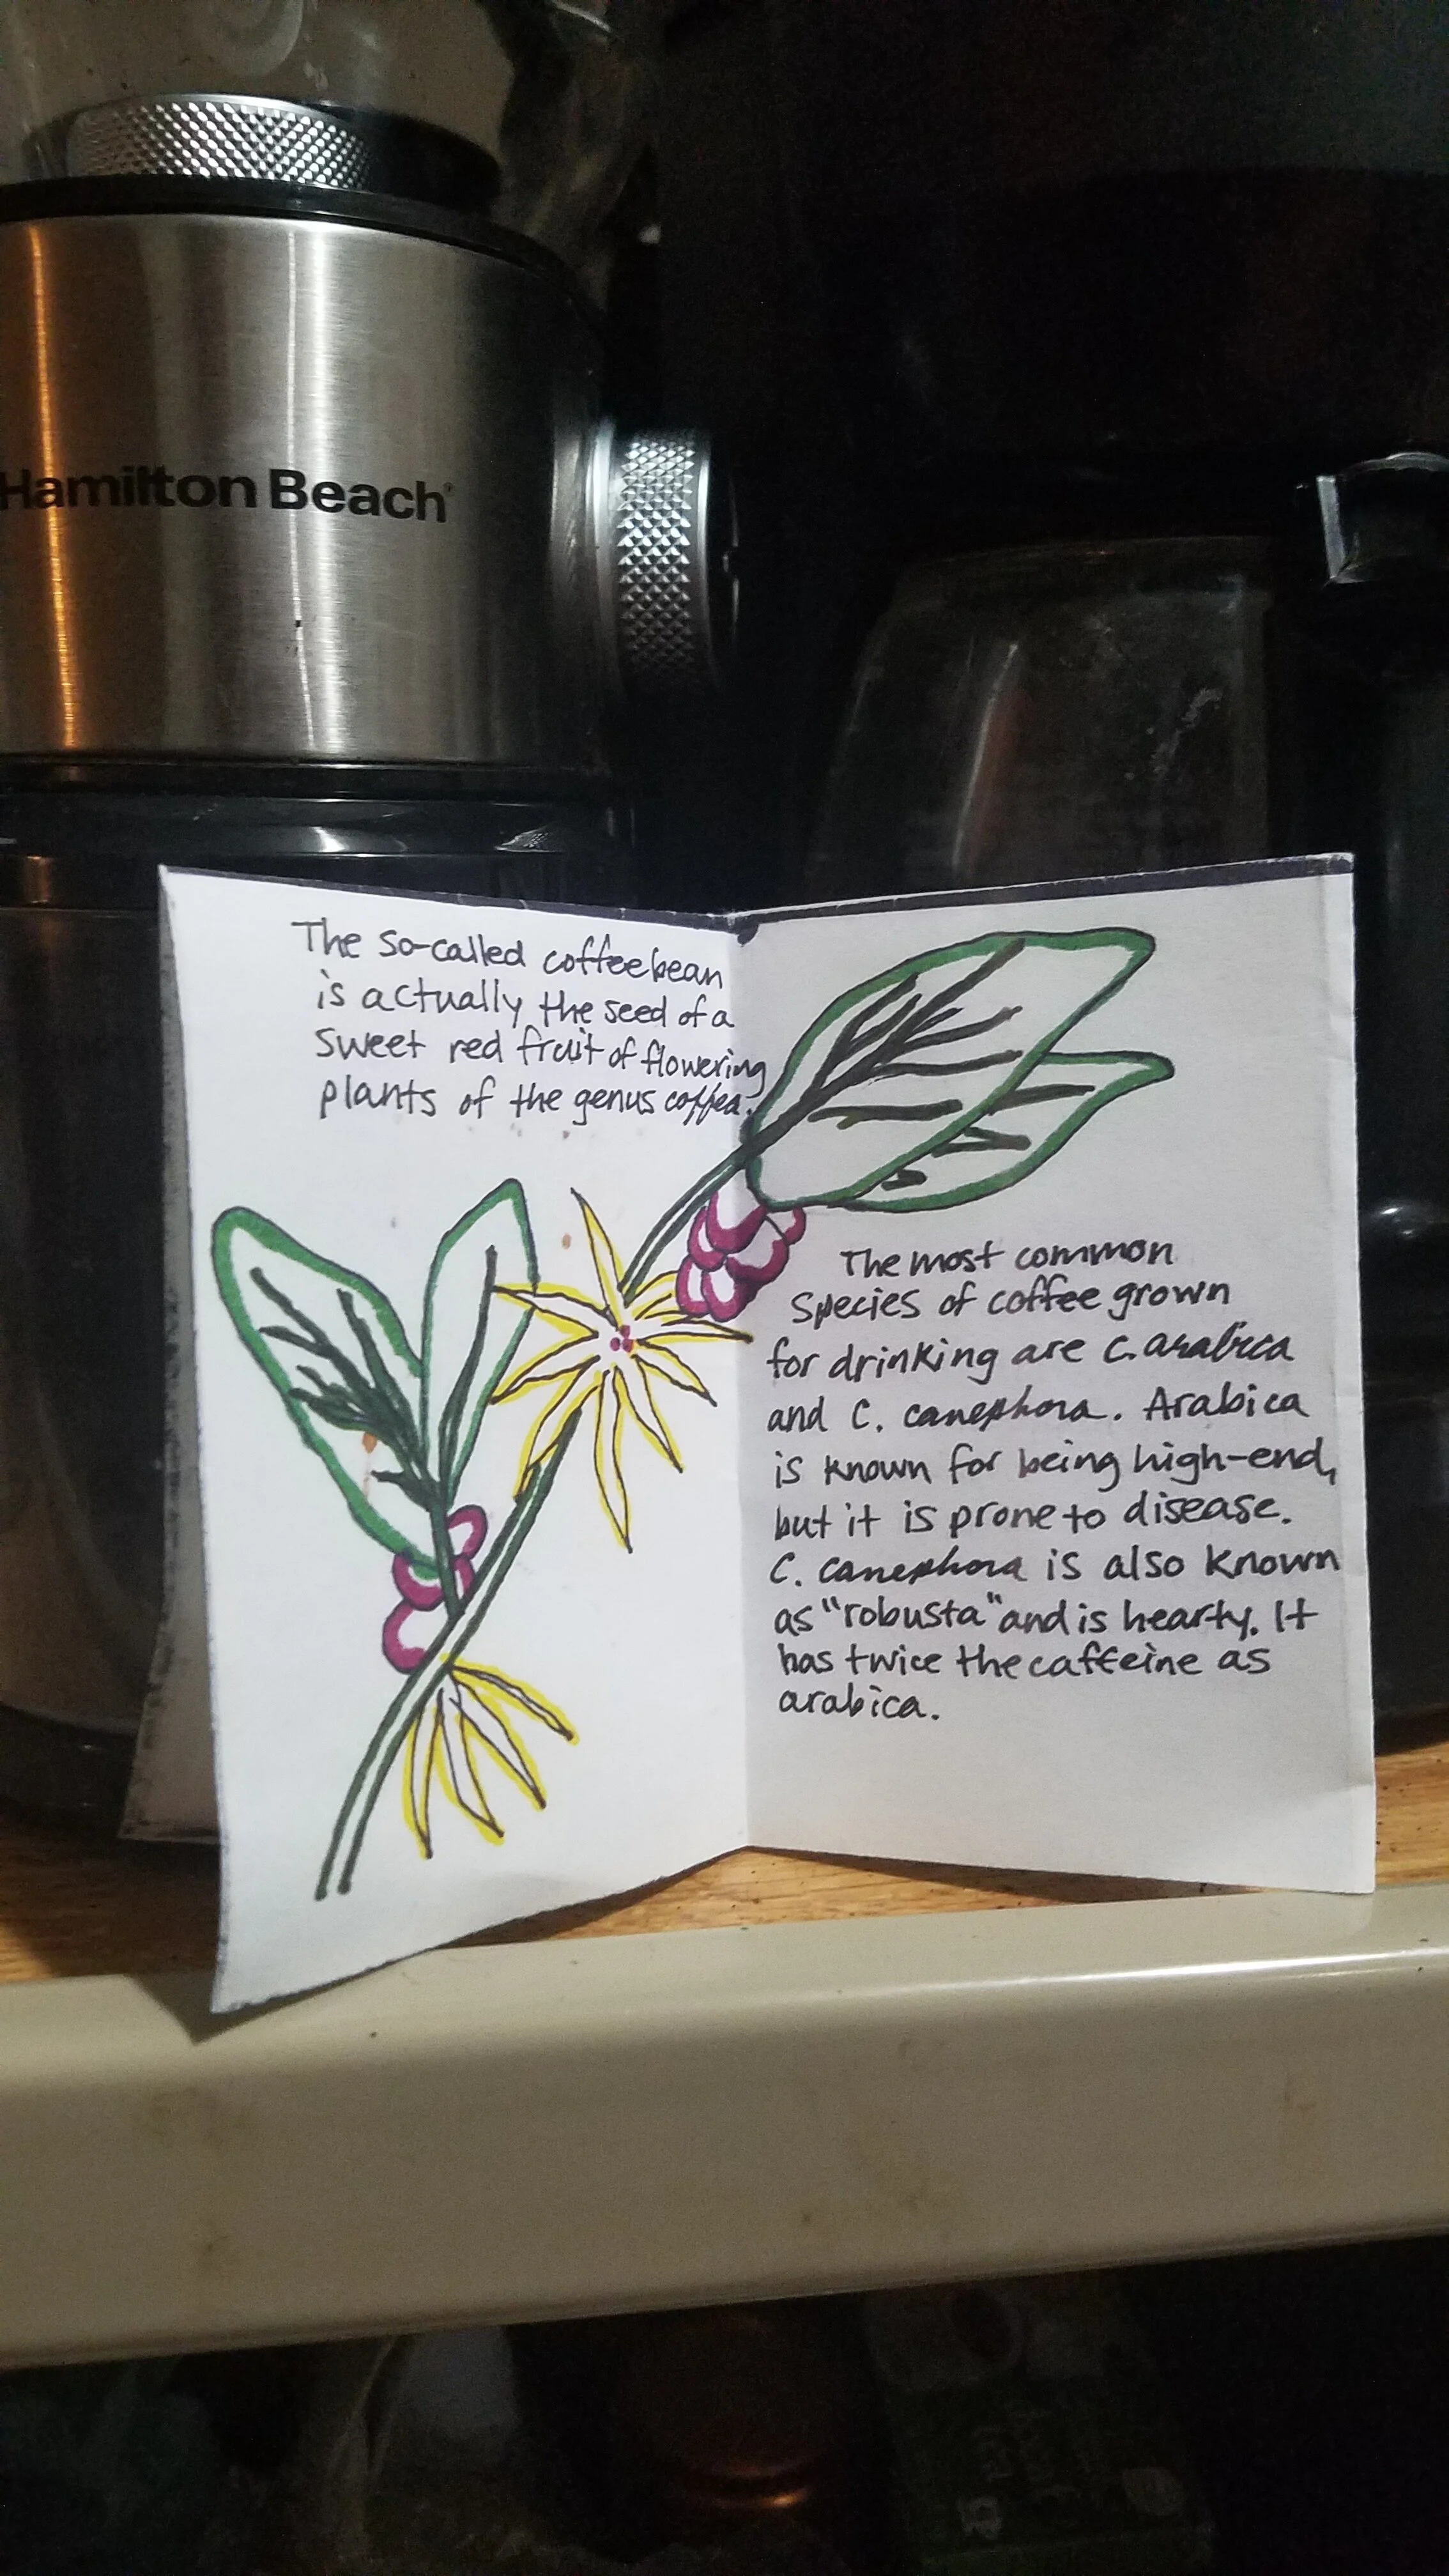 Hamilton Beach
The so-called coffeebean
is actually the seed of a
sweet red fruit of flowering
plants of the genus coffea.
The most common
species of coffee grown
for drinking are C. arabica
and C. canephora. Arabica
is known for being high-end,
but it is prone to disease.
C. canephora is also known
as "robusta" and is hearty. It
has twice the caffeine as
arabica.